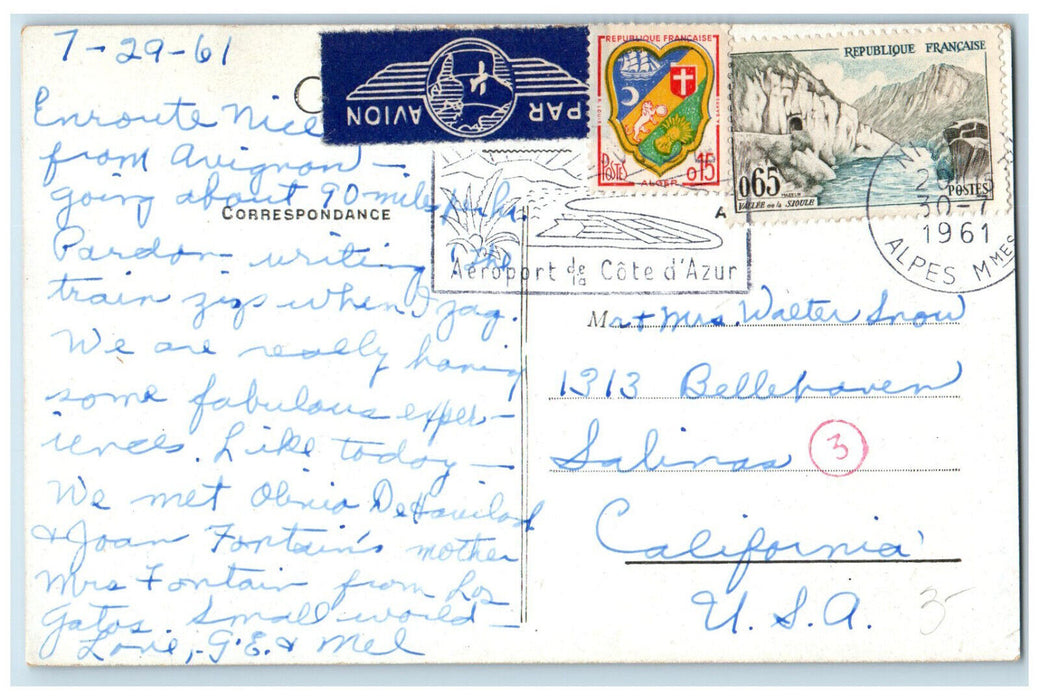 7-29-61
Enroute Nice
from Avignon -
going about 90 miles
Pardon writing the
train zigs when I zag.
We are really having
some fabulous exper-
iences. Like today -
We met Olivia DeHaviland
& Joan Fontain's mother
Mrs Fontain from Los
Gatos. Small world -
Love, - G.E. & Mel
CORRESPONDANCE
PAR AVION
REPUBLIQUE FRANÇAISE
POSTES
ALGER 0,15
REPUBLIQUE FRANÇAISE
0,65
POSTES
VALLÉE de la SIOULE
Aéroport de la Côte d'Azur
30-7
1961
ALPES MMES
Mr & Mrs. Walter Snow
1313 Bellehaven
Salinas
3
California
U.S.A.
3-